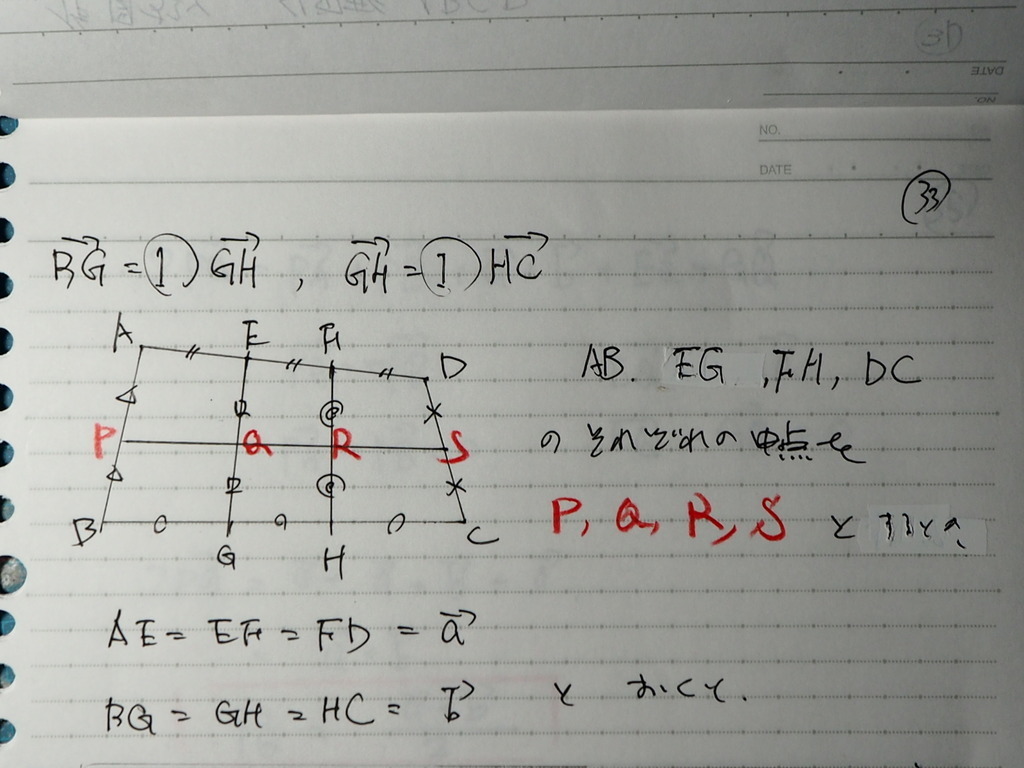 NO.
DATE
33
BG = 1 GH , GH = 1 HC
A E F D
P Q R S
B G H C
AB. EG , FH, DC
の それぞれの 中点を
P, Q, R, S と するとき、
AE = EF = FD = a
BG = GH = HC = b と おくと.